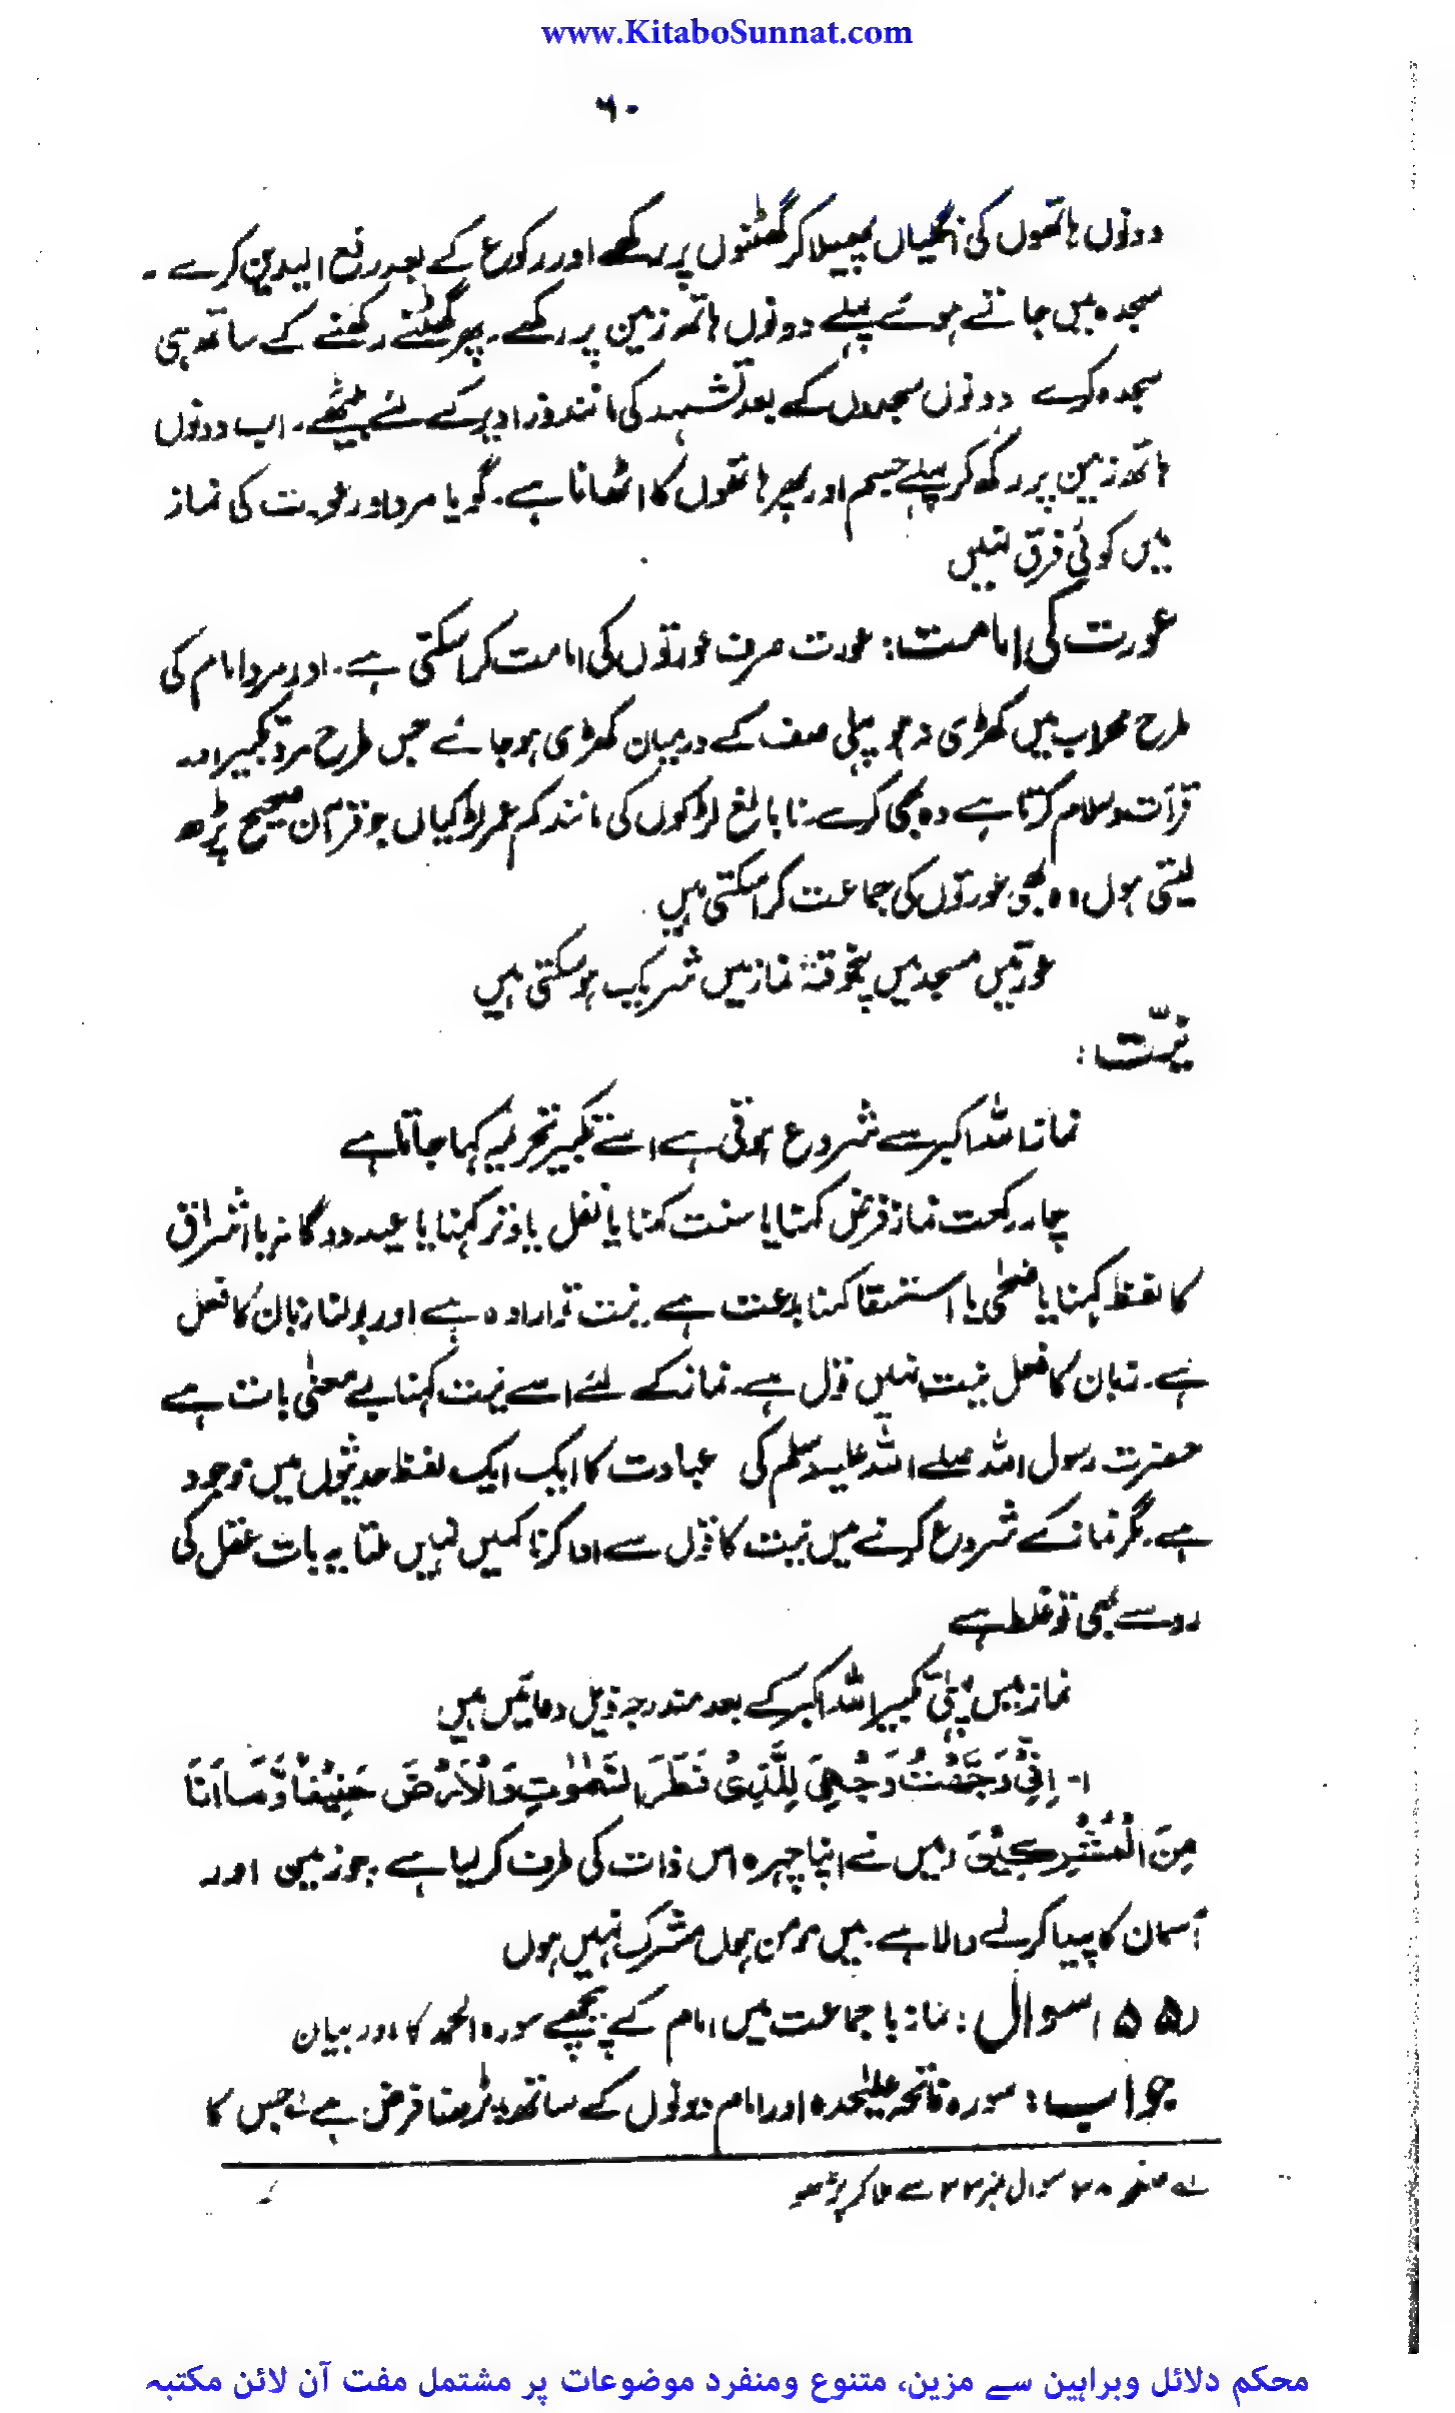 www.KitaboSunnat.com
۶۰
دونوں ہاتھوں کی انگلیاں پھیلا کر گھٹنوں پر رکھے اور رکوع کے بعد رفع الیدین کرے ۔
سجدہ میں جاتے ہوئے پہلے دونوں ہاتھ زمین پر رکھے۔ پھر گھٹنے رکھنے کے ساتھ ہی
سجدہ کرے دونوں سجدوں کے بعد تشہد کی مانند ذرا دیر کے لئے بیٹھے۔ اب دونوں
ہاتھ زمین پر رکھ کر پہلے جسم اور پھر ہاتھوں کا اٹھانا ہے۔ گویا مرد اور عورت کی نماز
میں کوئی فرق نہیں
عورت کی امامت: عورت صرف عورتوں کی امامت کرا سکتی ہے۔ اور مرد امام کی
طرح محراب میں کھڑی نہ ہو پہلی صف کے درمیان کھڑی ہو جائے جس طرح مرد تکبیر اور
قرآت و سلام کرتا ہے وہ بھی کرے۔ نابالغ لڑکوں کی مانند کم عمر لڑکیاں جو قرآن صحیح پڑھ
لیتی ہوں وہ بھی عورتوں کی جماعت کرا سکتی ہیں
عورتیں مسجد میں پنجوقتہ نماز میں شریک ہو سکتی ہیں
نیّت :
نماز اللہ اکبر سے شروع ہوتی ہے اسے تکبیر تحریمہ کہا جاتا ہے
چار رکعت نماز فرض کہنا یا سنت کہنا یا نفل یا وتر کہنا یا عید دوگانہ یا اشراق
کا لفظ کہنا یا ضحیٰ یا استسقا کہنا بدعت ہے۔ نیت تو ارادہ ہے اور بولنا زبان کا فعل
ہے۔ زبان کا فعل نیت نہیں قول ہے۔ نماز کے لئے اسے نیت کہنا بے معنیٰ بات ہے
حضرت رسول اللہ صلے اللہ علیہ وسلم کی عبادت کا ایک ایک لفظ حدیثوں میں موجود
ہے۔ مگر نماز کے شروع کرنے میں نیت کا قول سے ادا کرنا کہیں نہیں ملتا یہ بات عقل کی
رو سے بھی تو غلط ہے
نماز میں پہلی تکبیر اللہ اکبر کے بعد مندرجہ ذیل دعائیں ہیں
۱- اِنِّیْ وَجَّهْتُ وَجْهِیَ لِلَّذِیْ فَطَرَ السَّمٰوٰتِ وَالْاَرْضَ حَنِیْفًا وَّمَا اَنَا
مِنَ الْمُشْرِکِیْنَ (میں نے اپنا چہرہ اس ذات کی طرف کر لیا ہے جو زمین اور
آسمان کا پیدا کرنے والا ہے۔ میں مومن ہوں مشرک نہیں ہوں
(۵۵) سوال : نماز با جماعت میں امام کے پیچھے سورہ الحمد کا اور بیان
جواب : سورہ فاتحہ علیٰحدہ اور امام دونوں کے ساتھ پڑھنا فرض ہے ؎ جس کا
؎ صفحہ ۳۸ سوال نمبر ۲۲ سے ملا کر پڑھو
محکم دلائل وبراہین سے مزین، متنوع ومنفرد موضوعات پر مشتمل مفت آن لائن مکتبہ